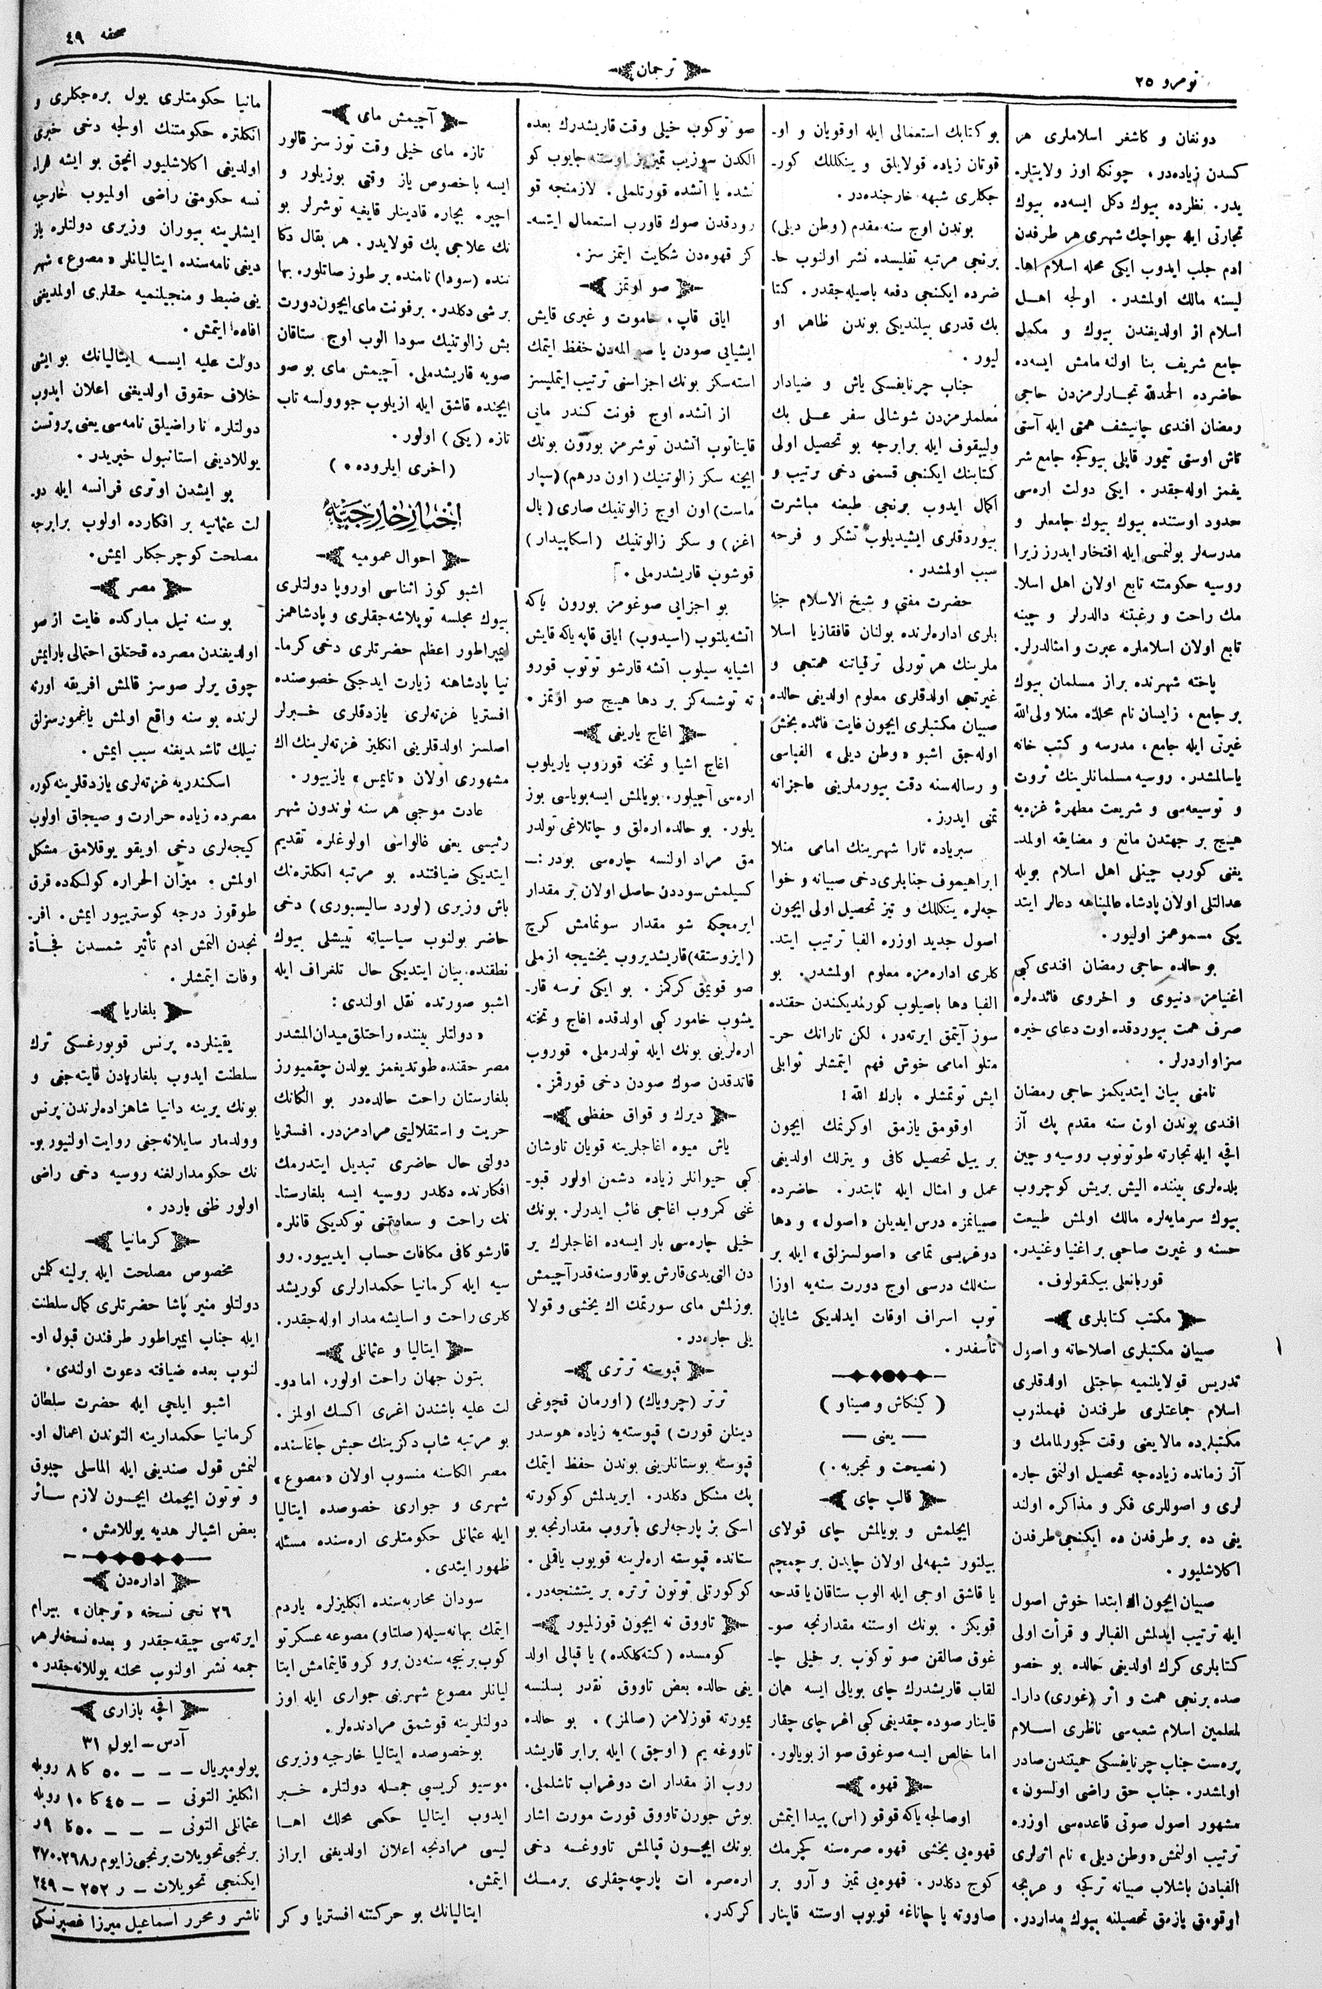 نومرو ٢٥
ترجمان
صحفه ٤٩
دونغان و كاشغر اسلاملرى هر
كسدن زياده‌در، چونكه اوز ولايتلر-
يدر. نظرده بيوك دكل ايسه‌ده بيوك
تجارتى ايله چواچك شهرى هر طرفدن
ادم جلب ايدوب ايكى محله اسلام اها-
ليسنه مالك اولمشدر. اولجه اهل
اسلام از اولديغندن بيوك و مكمل
جامع شريف بنا اولنه مامش ايسه‌ده
حاضرده الحمدلله تجارلرمزدن حاجى
رمضان افندى چانيشف همتى ايله آستى
تاش اوستى تيمور قاپلى بيوكجه جامع شر
يفمز اوله‌جقدر. ايكى دولت اره‌سى
حدود اوستنده بيوك بيوك جامعلر و
مدرسه‌لر بولنمسى ايله افتخار ايدرز زيرا
روسيه حكومتنه تابع اولان اهل اسلا-
مك راحت و رغبتنه دالدرلر و چينه
تابع اولان اسلاملره عبرت و امثالدرلر.
ياخته شهرنده براز مسلمان بيوك
بر جامع، زايسان نام محلده منلا ولى الله
غيرتى ايله جامع، مدرسه و كتب خانه
ياسالمشدر. روسيه مسلمانلرينك ثروت
و توسيعه‌سى و شريعت مطهرهٔ غزه‌يه
هيچ بر جهتدن مانع و مضايقه اولمد-
يغنى كورب چينلى اهل اسلام بويله
عدالتلى اولان پادشاه عالمپناهه دعالر ايتد
يكى مسموعمز اوليور.
بو حالده حاجى رمضان افندى كبى
اغنيامز دنيوى و اخروى فائده‌لره
صرف همت بيوردقده اوت دعاى خيره
سزاواردرلر.
نامنى بيان ايتديكمز حاجى رمضان
افندى بوندن اون سنه مقدم پك آز
اقچه ايله تجارته طوتونوب روسيه و چين
بلده‌لرى بيننده اليش بريش كوچروب
بيوك سرمايه‌لره مالك اولمش طبيعت
حسنه و غيرت صاحبى بر اغنيا وغنيدر.
قوربانعلى بيكنقولوف.
مكتب كتابلرى
صبيان مكتبلرى اصلاحانه و اصول
تدريس قولايلنميه حاجتلى اولدقلرى
اسلام جماعتلرى طرفندن فهملنرب
مكتبلرده مالا يعنى وقت كچورلمامك و
آز زمانده زياده‌جه تحصيل اولنمق چاره
لرى و اصوللرى فكر و مذاكره اولند
يغى ده بر طرفدن ده ايكنجى طرفدن
اكلاشليور.
صبيان ايچون اك ابتدا خوش اصول
ايله ترتيب ايدلمش الفبالر و قرأت اولى
كتابلرى كرك اولديغى حالده بو خصو
صده برنجى همت و اثر (غورى) دارا-
لمعلمين اسلام شعبه‌سى ناظرى اسلام
پرست جناب چرنايفسكى حميتندن صادر
اولمشدر. جناب حق راضى اولسون،
مشهور اصول صوتى قاعده‌سى اوزره
ترتيب اولنمش «وطن ديلى» نام اثرلرى
الفبادن باشلاب صبيانه تركجه و عربجه
اوقومق يازمق تحصيلنه بيوك مداردر.
بو كتابك استعمالى ايله اوقويان و او-
قوتان زياده قولايلق و ينكللك كور-
جكلرى شبهه خارجنده‌در.
بوندن اوچ سنه مقدم (وطن ديلى)
برنجى مرتبه تفليسده نشر اولنوب حا-
ضرده ايكنجى دفعه باصيله جقدر. كتا
بك قدرى بيلنديكى بوندن ظاهر او
ليور.
جناب چرنايفسكى ياش و ضيادار
معلملرمزدن شوشالى سفر على بك
ولييقوف ايله برابرجه بو تحصيل اولى
كتابنك ايكنجى قسمنى دخى ترتيب و
اكمال ايدوب برنجى طبعنه مباشرت
بيوردقلرى ايشيديلوب تشكر و فرحه
سبب اولمشدر.
حضرت مفتى و شيخ الاسلام جنا
بلرى اداره‌لرنده بولنان قافقازيا اسلا
ملرينك هر تورلى ترقياتنه همتجى و
غيرتجى اولدقلرى معلوم اولديغى حالده
صبيان مكتبلرى ايچون غايت فائده بخش
اوله‌جق اشبو «وطن ديلى» الفباسى
و رساله‌سنه دقت بيورملرينى عاجزانه
تمنى ايدرز.
سبرياده تارا شهرينك امامى منلا
ابراهيموف جنابلرى دخى صبيانه و خوا
جه‌لره ينكللك و تيز تحصيل اولى ايچون
اصول جديد اوزره الفبا ترتيب ايتد.
كلرى اداره‌مزه معلوم اولمشدر. بو
الفبا دها باصيلوب كورلمديكندن حقنده
سوز آيتمق ايرته‌در، لكن تارانك حر-
متلو امامى خوش فهم ايتمشلر توابلى
ايش توتمشلر. بارك الله!
اوقومق يازمق اوكرنمك ايچون
بر ييل تحصيل كافى و يترلك اولديغى
عمل و امثال ايله ثابتدر. حاضرده
صبيانمزه درس ايديلن «اصول» و دها
دوغريسى تمامى «اصولسزلق» ايله بر
سنه‌لك درسى اوچ دورت سنه‌يه اوزا
توب اسراف اوقات ايدلديكى شايان
تأسفدر.
(كنكاش و صيناو)
— يعنى —
(نصيحت و تجربه.)
قالب چاى
ايچلمش و بويالمش چاى قولاى
بيلنور شبهه‌لى اولان چايدن بر چمچم
يا قاشق اوجى ايله الوب ستاقان يا قدحه
قويكز. بونك اوستنه مقدارنجه صو-
غوق صالقن صو توكوب بر خيلى چا-
لقاب قاريشدرك چاى بويالى ايسه همان
قاينار صوده چقديغى كبى اغر چاى چقار
اما خالص ايسه صوغوق صو از بويالور.
قهوه
اوصالجه ياكه قوقو (اس) پيدا ايتمش
قهوه‌يى يخشى قهوه صره‌سنه كچرمك
كوچ دكلدر. قهوه‌يى تميز و آرو بر
صاووته يا چاناغه قويوب اوستنه قاينار
صو توكوب خيلى وقت قاريشدرك بعده
الكدن سوزيب تميز بز اوستنه جايوب كو
نشده يا اتشده قورتلملى. لازمنجه قو
رودقدن صوك قاورب استعمال ايتسه-
كز قهوه‌دن شكايت ايتمز سز.
صو اوتمز
اياق قاپ، خاموت و غيرى قايش
ايشيايى صودن يا صو المه‌دن حفظ ايتمك
استه‌سكز بونك اجزاسنى ترتيب ايتمليسز
از اتشده اوچ فونت كندر مانى
قايناتوب اتشدن توشرمز بورون بونك
ايچنه سكز زالوتنيك (اون درهم) (سپار
ماست) اون اوچ زالوتنيك صارى (بال
اغز) و سكز زالوتنيك (اسكاپيدار)
قوشوب قاريشدرملى.
بو اجزايى صوغومز بورون ياكه
اتشه يلتوب (اسيدوب) اياق قابه ياكه قايش
اشيايه سيلوب اتشه قارشو توتوب قورو
ته توشسه‌كز بر دها هيچ صو اوتمز.
اغاج ياريغى
اغاج اشيا و تخته قوروب ياريلوب
اره‌سى آچيلور. بويالمش ايسه بوياسى بوز
يلور. بو حالده اره‌لق و چاتلاغى تولدر
مق مراد اولنسه چاره‌سى بودر:—
كسيلمش سوددن حاصل اولان بر مقدار
ايرمچكه شو مقدار سونمامش كرچ
(ايزوستقه) قاريشديروب يخشيجه ازملى
صو قويمق كركمز. بو ايكى نرسه قار-
يشوب خامور كبى اولدقده اغاج و تخته
اره‌لرينى بونك ايله تولدرملى. قوروب
قاتدقدن صوك صودن دخى قورقمز.
ديرك و قواق حفظى
ياش ميوه اغاجلرينه قويان تاوشان
كبى حيوانلر زياده دشمن اولور قبو-
غنى كمروب اغاجى غائب ايدرلر. بونك
خيلى چاره‌سى بار ايسه‌ده اغاجلرك ير
دن التى يدى قارش يوقاروسنه قدر آچيمش
بوزلمش ماى سورتمك اك يخشى و قولا
يلى چاره‌در.
قپوسته ترترى
ترتر (چروياك) (اورمان قچوغى
دينلن قورت) قپوسته‌يه زياده هوسدر
قپوسته بوستانلرينى بوندن حفظ ايتمك
پك مشكل دكلدر. ايريدلمش كوكورته
اسكى بز پارچه‌لرى باتروب مقدارنجه بو
ستانده قپوسته اره‌لرينه قويوب ياقملى.
كوكورتلى توتون ترتره بر يتشنجه‌در.
تاووق نه ايچون قوزلميور
كومسده (كته‌كلكده) يا قپالى اولد
يغى حالده بعض تاووق نقدر بسلنسه
يمورته قوزلامز (صالمز). بو حالده
تاووغه يم (اوچق) ايله برابر قاريشد
روب از مقدار ات دوغراب تاشلملى.
بوش جورن تاووق قورت مورت اشار
بونك ايچون قپالمش تاووغه دخى
اره‌صره ات پارچه‌چقلرى برمك
كركدر.
آچيمش ماى
تازه ماى خيلى وقت توز سز قالور
ايسه با خصوص ياز وقتى بوزيلور و
اجير. بيچاره قادينلر قايغيه توشرلر بو
نك علاجى پك قولايدر. هر بقال دكا
ننده (سودا) نامنده بر طوز صاتلور. بها
بر شى دكلدر. بر فونت ماى ايچون دورت
بش زالوتنيك سودا الوب اوچ ستاقان
صويه قاريشدرملى. آچيمش ماى بو صو
ايچنده قاشق ايله ازيلوب جوولسه تاب
تازه (يكى) اولور.
(اخرى ايلروده.)
اخبار خارجيه
احوال عموميه
اشبو كوز اثناسى اوروپا دولتلرى
بيوك مجلسه توپلاشه جقلرى و پادشاهمز
ايمپراطور اعظم حضرتلرى دخى كرما-
نيا پادشاهنه زيارت ايدجكى خصوصنده
افستريا غزته‌لرى يازدقلرى خبرلر
اصلسز اولدقلرينى انكليز غزته‌لرينك اك
مشهورى اولان «تايمس» يازييور.
عادت موجبى هر سنه لوندون شهر
رئيسى يعنى غالواسى اولوغلره تقديم
ايتديكى ضيافتنده بو مرتبه انكلتره‌نك
باش وزيرى (لورد ساليسبورى) دخى
حاضر بولنوب سياسياته تييشلى بيوك
نطقنده بيان ايتديكى حال تلغراف ايله
اشبو صورتده نقل اولندى:
«دولتلر بيننده راحتلق ميدان المشدر
مصر حقنده طوتديغمز يولدن چقميورز
بلغارستان راحت حالده‌در بو الكانك
حريت و استقلاليتى مرادمزدر. افستريا
دولتى حال حاضرى تبديل ايتدرمك
افكارنده دكلدر روسيه ايسه بلغارستا-
نك راحت و سعادتمنى توكديكى قانلره
قارشو كافى مكافات حساب ايدييور. رو
سيه ايله كرمانيا حكمدارلرى كوريشد
كلرى راحت و اسايشه مدار اوله‌جقدر.
ايتاليا و عثمانلى
بتون جهان راحت اولور. اما دو-
لت عليه باشندن اغرى اكسك اولمز.
بو مرتبه شاپ دكزينك حبش جاغاسنده
مصر الكاسنه منسوب اولان «مصوع»
شهرى و جوارى خصوصده ايتاليا
ايله عثمانلى حكومتلرى اره‌سنده مسئله
ظهور ايتدى.
سودان محاربه‌سنده انكليزلره ياردم
ايتمك بهانه‌سيله (صلتاو) مصوعه عسكر تو
كوب برنيچه سنه‌دن برو كرو قايتمامش ايتا
ليانلر مصوع شهرينى جوارى ايله اوز
دولتلرينه قوشمق مرادنده‌لر.
بو خصوصده ايتاليا خارجيه وزيرى
موسيو كريسى جمله دولتلره خبر
ايدوب ايتاليا حكمى محلك اها
ليسى مرادنجه اعلان اولديغنى ابراز
ايتمش.
ايتاليانك بو حركتنه افستريا و كر
مانيا حكومتلرى يول بره‌جكلرى و
انكلتره حكومتنك اولجه دخى خبرى
اولديغى اكلاشليور انچق بو ايشه فرا-
نسه حكومتى راضى اولميوب خارجيه
ايشلرينه بيوران وزيرى دولتلره ياز
دينى نامه‌سنده ايتاليانلر «مصوع» شهر
ينى ضبط و منجيلنميه حقلرى اولمديغنى
افاده ايتمش.
دولت عليه ايسه ايتاليانك بو ايشى
خلاف حقوق اولديغنى اعلان ايدوب
دولتلره ناراضيلق نامه‌سى يعنى پروتست
يوللاديغى استانبول خبريدر.
بو ايشدن اوترى فرانسه ايله دو-
لت عثمانيه بر افكارده اولوب برابرجه
مصلحت كوچرجكلر ايمش.
مصر
بو سنه نيل مباركده غايت از صو
اولديغندن مصرده قحتلق احتمالى بار ايمش
چوق يرلر صوسز قالمش افريقه اورته
لرنده بو سنه واقع اولمش ياغمورسزلق
نيلك تاشمديغنه سبب ايمش.
اسكندريه غزته‌لرى يازدقلرينه كوره
مصرده زياده حرارت و صيجاق اولوب
كيجه‌لرى دخى اويقو يوقلامق مشكل
اولمش. ميزان الحراره كولكه‌ده قرق
طوقوز درجه كوستريور ايمش. افر-
نجدن التمش ادم تأثير شمسدن فجأة
وفات ايتمشلر.
بلغاريا
يقينلرده پرنس قوبورغسكى ترك
سلطنت ايدوب بلغاريادن قايته‌جغى و
بونك يرينه دانيا شاهزاده‌لرندن پرنس
وولدمار سايلانه‌جغى روايت اولنيور بو-
نك حكومدارلغنه روسيه دخى راضى
اولور ظنى باردر.
كرمانيا
مخصوص مصلحت ايله برلينه كلمش
دولتلو منير پاشا حضرتلرى كمال سلطنت
ايله جناب ايمپراطور طرفندن قبول او-
لنوب بعده ضيافته دعوت اولندى.
اشبو ايلچى ايله حضرت سلطان
كرمانيا حكمدارينه التوندن اعمال او-
لنمش قول صنديغى ايله الماسلى چبوق
و توتون ايچمك ايچون لازم سائر
بعض اشيالر هديه يوللامش.
اداره‌دن
٢٦ نجى نسخه «ترجمان» بيرام
ايرته‌سى چيقه‌جقدر و بعده نسخه‌لر هر
جمعه نشر اولنوب محلنه يوللانه‌جقدر.
اقچه بازارى
آدس — ايول ٣١
پولومپريال — — — ٥٠ كا ٨ روبله
انكليز التونى — — ٤٥ كا ١٠ روبله
عثمانلى التونى — — — ٥٠ كا ٩ ر
برنجى تحويلات برنجى زايوم ر ٢٩٨-٢٧٠
ايكنجى تحويلات — ر ٢٥٢ — ٢٤٩
ناشر و محرر اسماعيل ميرزا غصپرنسكى